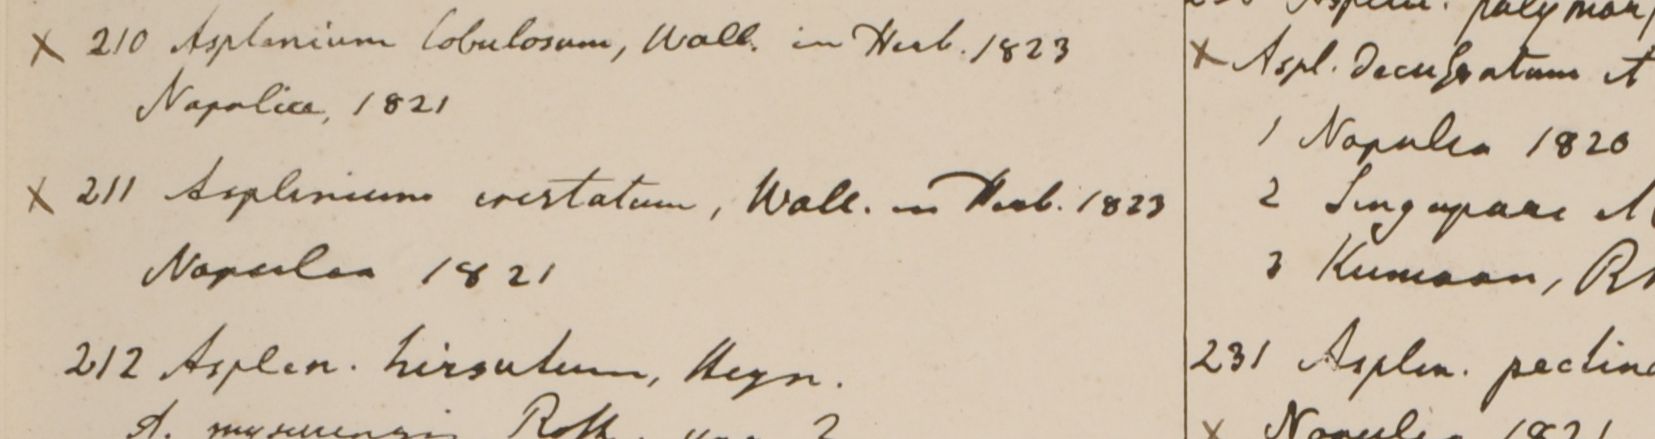 × 210 Asplenium lobulosum, Wall. in Herb. 1823
Napalia, 1821
× 211 Asplenium cristatum, Wall. in Herb. 1823
Napalia 1821
212 Asplen. hirsutum, Heyn.
A. Roth.
Asplen. polymor
× Aspl. decussatum A
1 Napalia 1820
2 Singapore
3 Kumaon, R
231 Asplen. pectina
× Napalia 1821